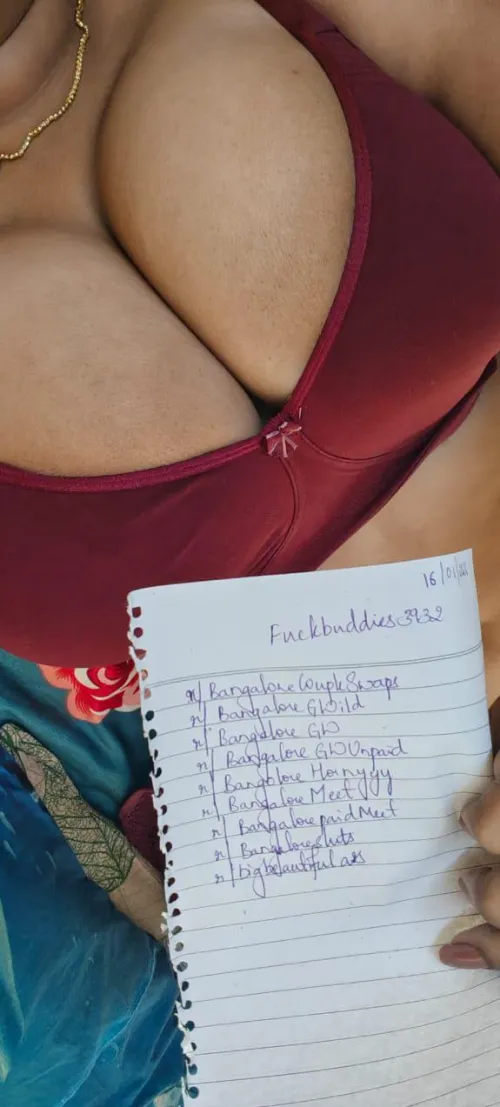 16/01/
Fuckbuddies3932
r/BangaloreCoupleSwaps
r/BangaloreGWild
r/BangaloreGW
r/BangaloreGWUnpaid
r/BangaloreHornyyy
r/BangaloreMeet
r/BangalorepaidMeet
r/Bangaloresluts
r/bigbeautifulass